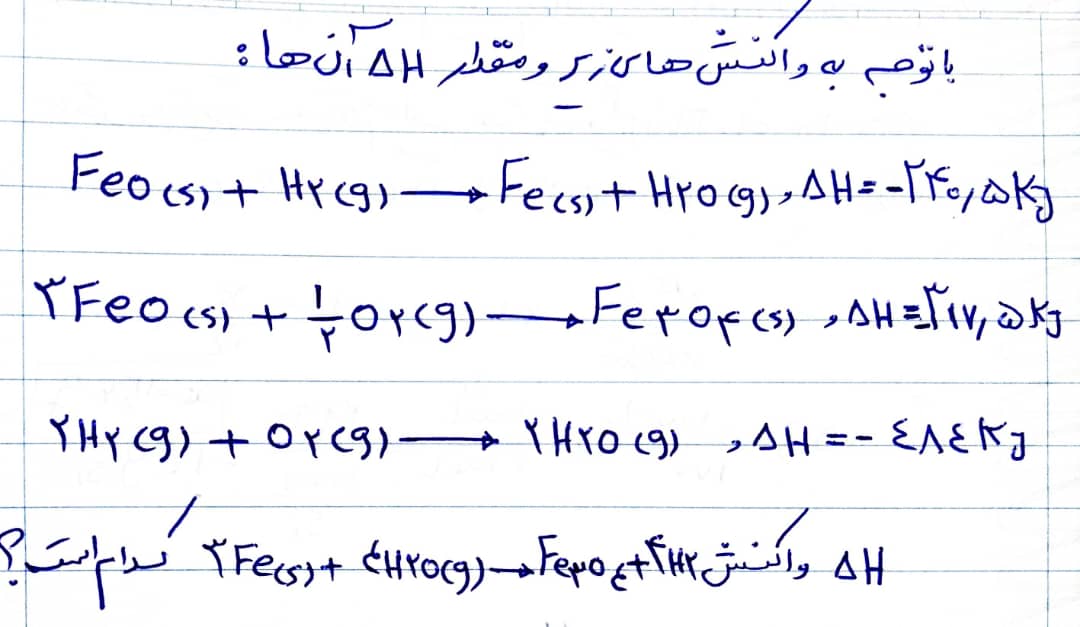 با توجه به واکنش های زیر و مقدار ΔH آن ها :
FeO(s) + H۲(g) → Fe(s) + H۲O(g) , ΔH = -۲۴۰,۵ KJ
۳FeO(s) + ۱/۲ O۲(g) → Fe۳O۴(s) , ΔH = -۳۱۷,۵ KJ
۲H۲(g) + O۲(g) → ۲H۲O(g) , ΔH = - ٤٨٤ KJ
ΔH واکنش ۳Fe(s) + ٤H۲O(g) → Fe۳O٤ + ۴H۲ کدام است؟